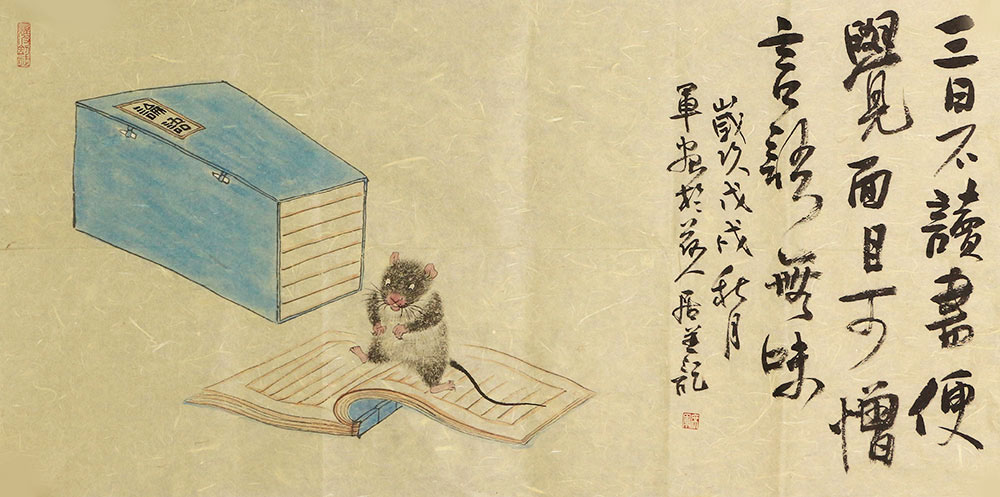 三日不讀書便
覺面目可憎
言語無味
歲次戊戌秋月
軍於人居並記
論語